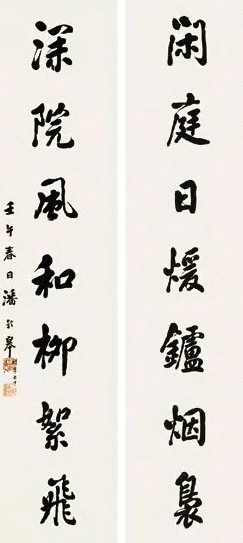 閑庭日煖鑪烟裊
深院風和柳絮飛
壬午春日潘齡皋